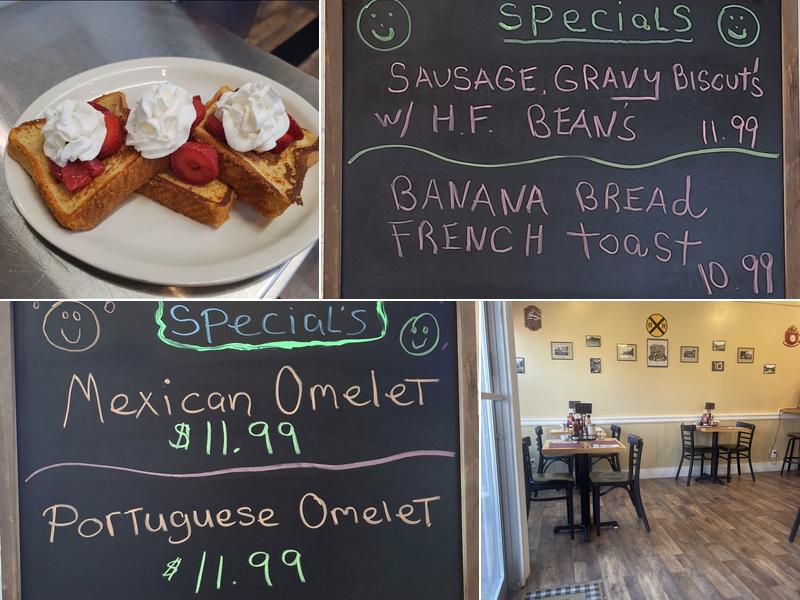 SPecialS
SAUSAGE, GRAVY BiscuT's
W/ H.F. BEAN'S 11.99
BANANA BREAd
FRENCH Toast
10.99
SPecial's
Mexican OmeleT
$11.99
PorTuguese OmeleT
$11.99
R R